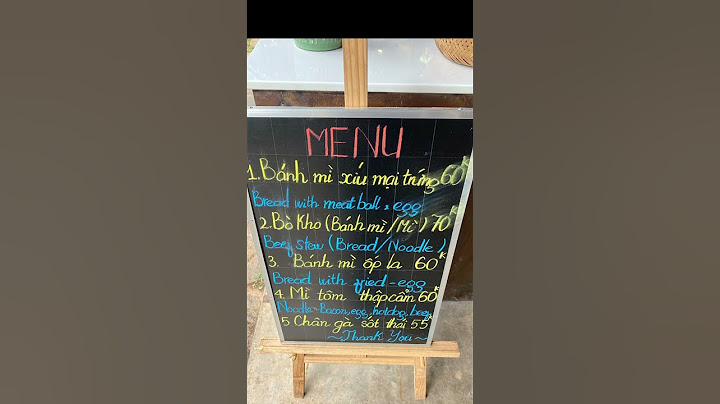 MENU
1. Bánh mì xíu mại trứng 60K
Bread with meat ball & egg
2. Bò Kho (Bánh mì / Mì) 70K
Beef stew (Bread/Noodle)
3. Bánh mì ốp la 60K
Bread with fried-egg
4. Mì tôm thập cẩm 60K
Noodle-Bacon, egg, hotdog, beef
5 Chân gà sốt thái 55K
~Thank You~